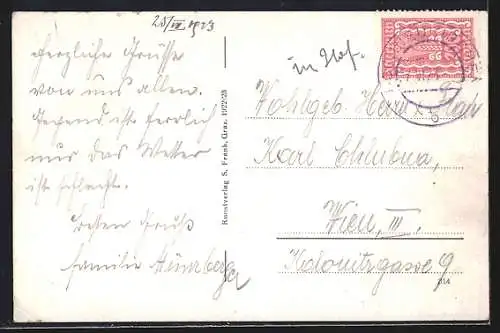 25/VI 1923
Herzliche Grüsse
von uns allen.
Gegend ist herrlich
nur das Wetter
ist schlecht.
Besten Gruß
Familie
Kunstverlag S. Frank, Graz. 1922/23
Wohlgeb. Herrn
Karl Chlubna,
Wien, III.
Kolonitzgasse 9